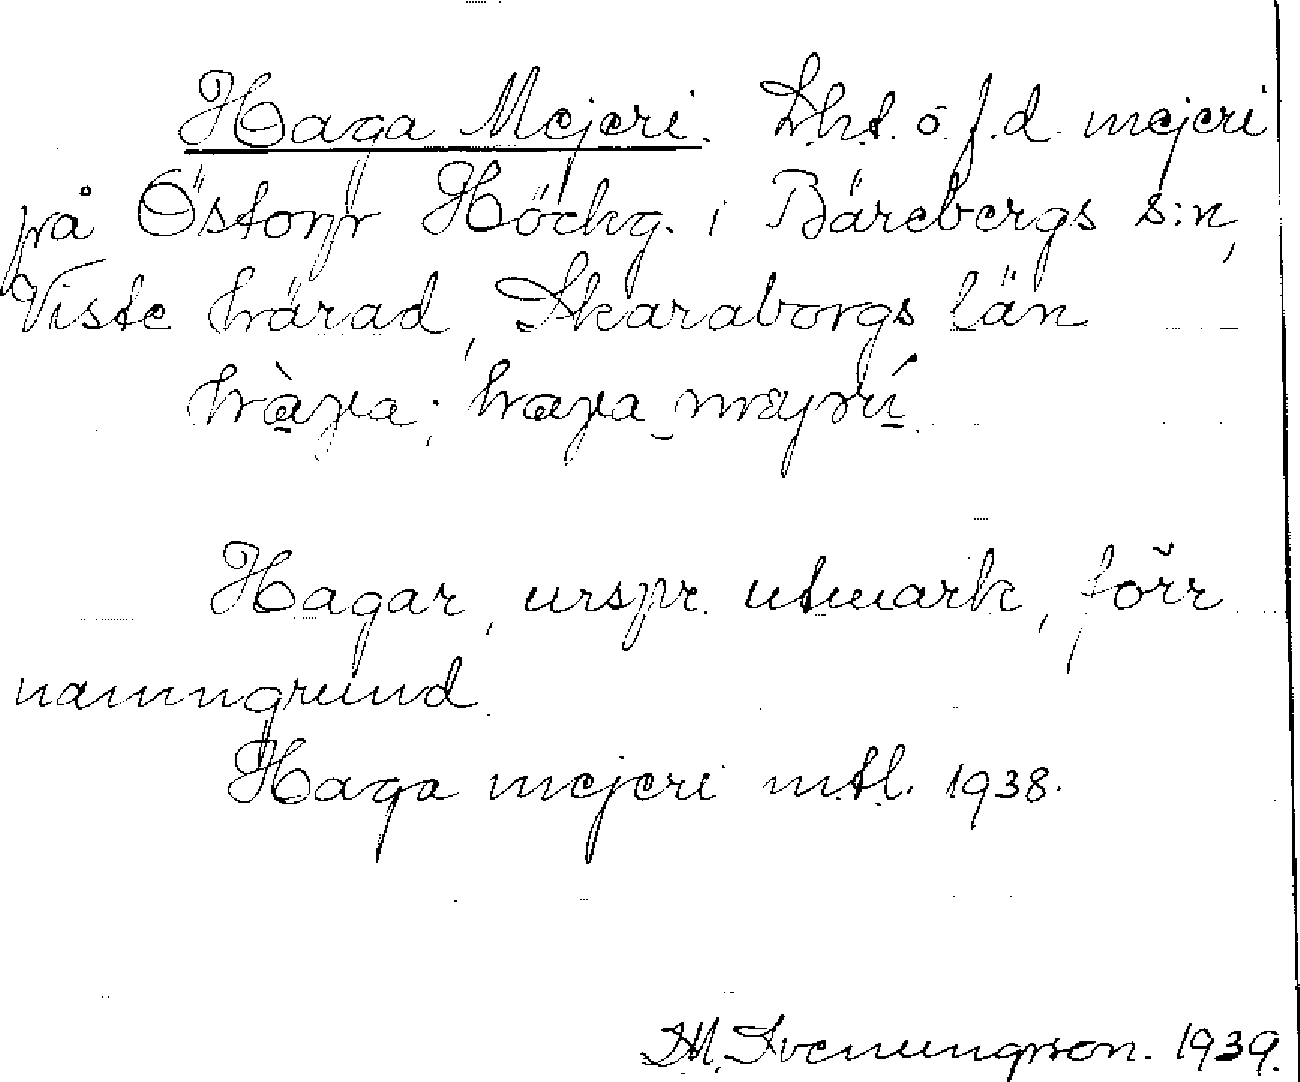 Haga Mejeri. Lht. o. f.d. mejeri
på Östorp Höckg. i Bärebergs s:n,
Viste härad, Skaraborgs län
hàga; haga
Hagar, urspr. utmark, förr
namngrund.
Haga mejeri mtl. 1938.
Svenungsson. 1939.